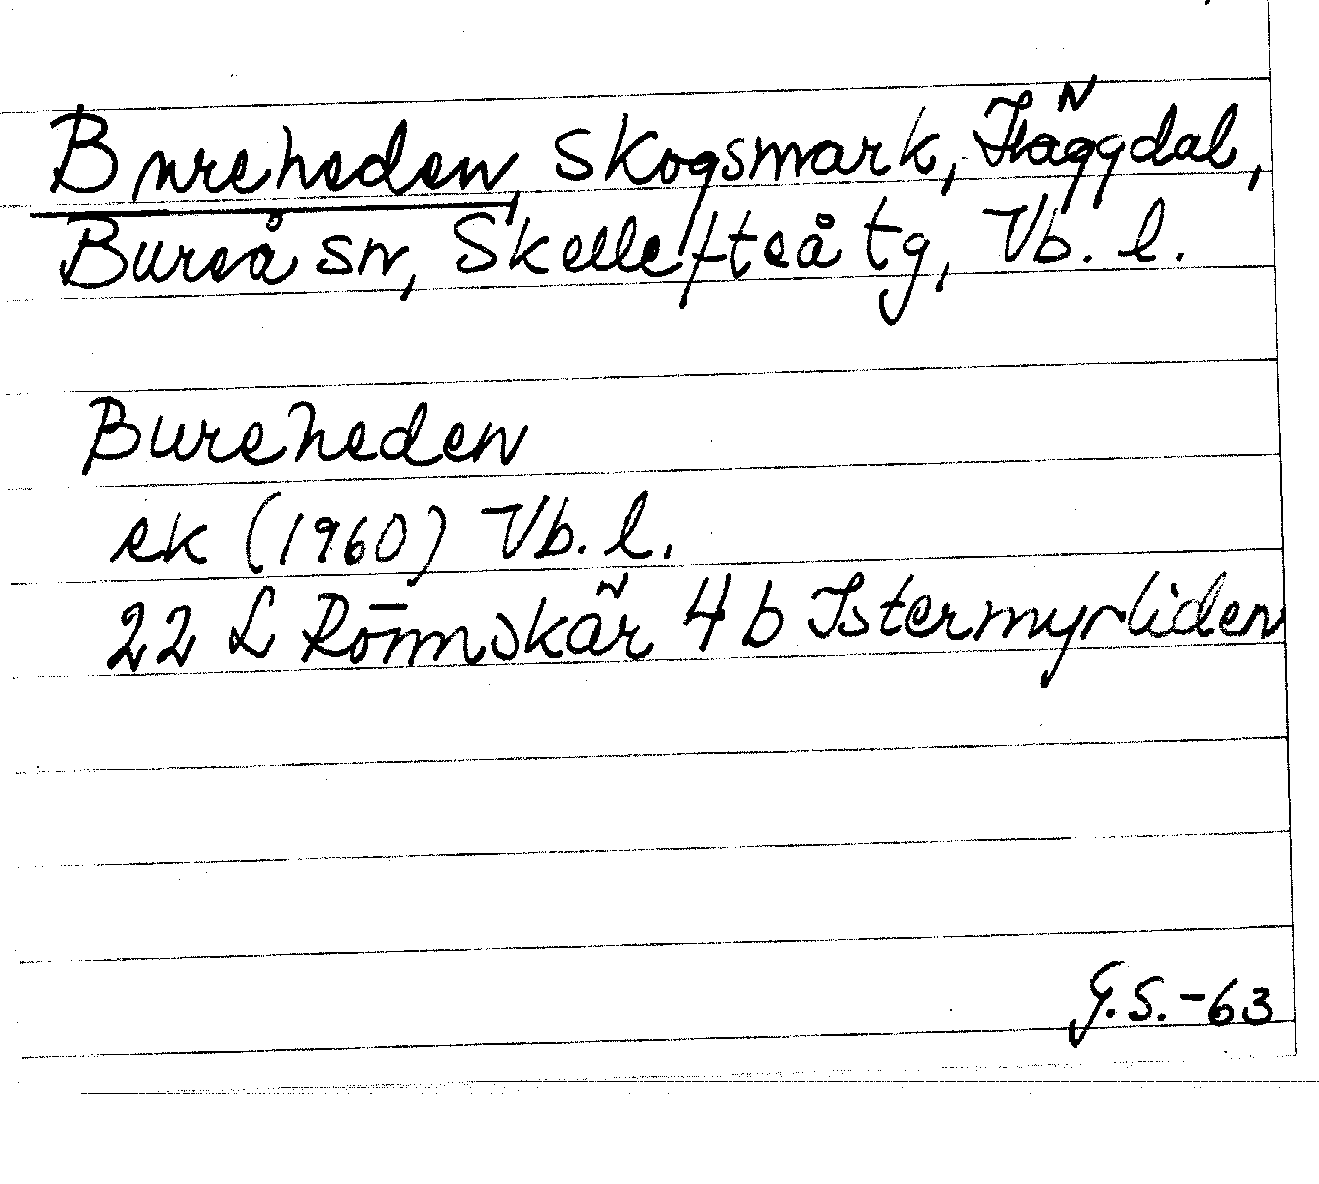 Bureheden, skogsmark, Häggdal,
Bureå sn, Skellefteå tg, Vb. l.
Bureheden
ek (1960) Vb. l.
22 L Rönnskär 4 b Istermyrliden
G.S.-63